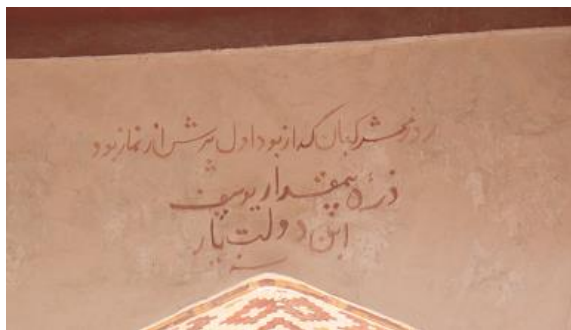 روز محشر کجان کداز بود اول پرسش از نماز بود
ذره بیمقدار یوسف
ابن دولت یار
سنه